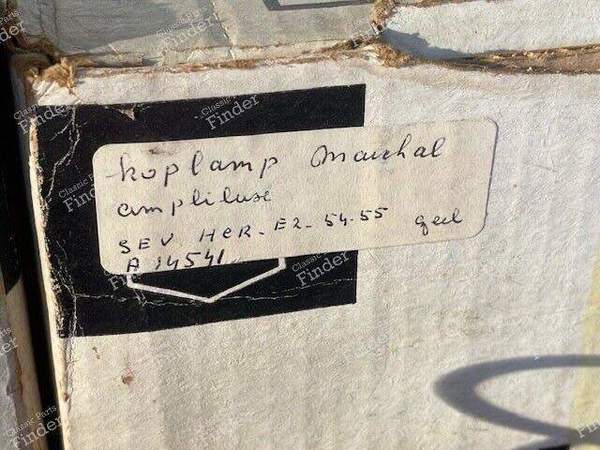 koplamp Marchal
ampliluxe
SEV HCR-E2-54-55 geel
A 14541
Classic Parts
Finder
Classic Parts
Finder
Classic Parts
Finder
Classic Parts
Finder
Classic Parts
Finder